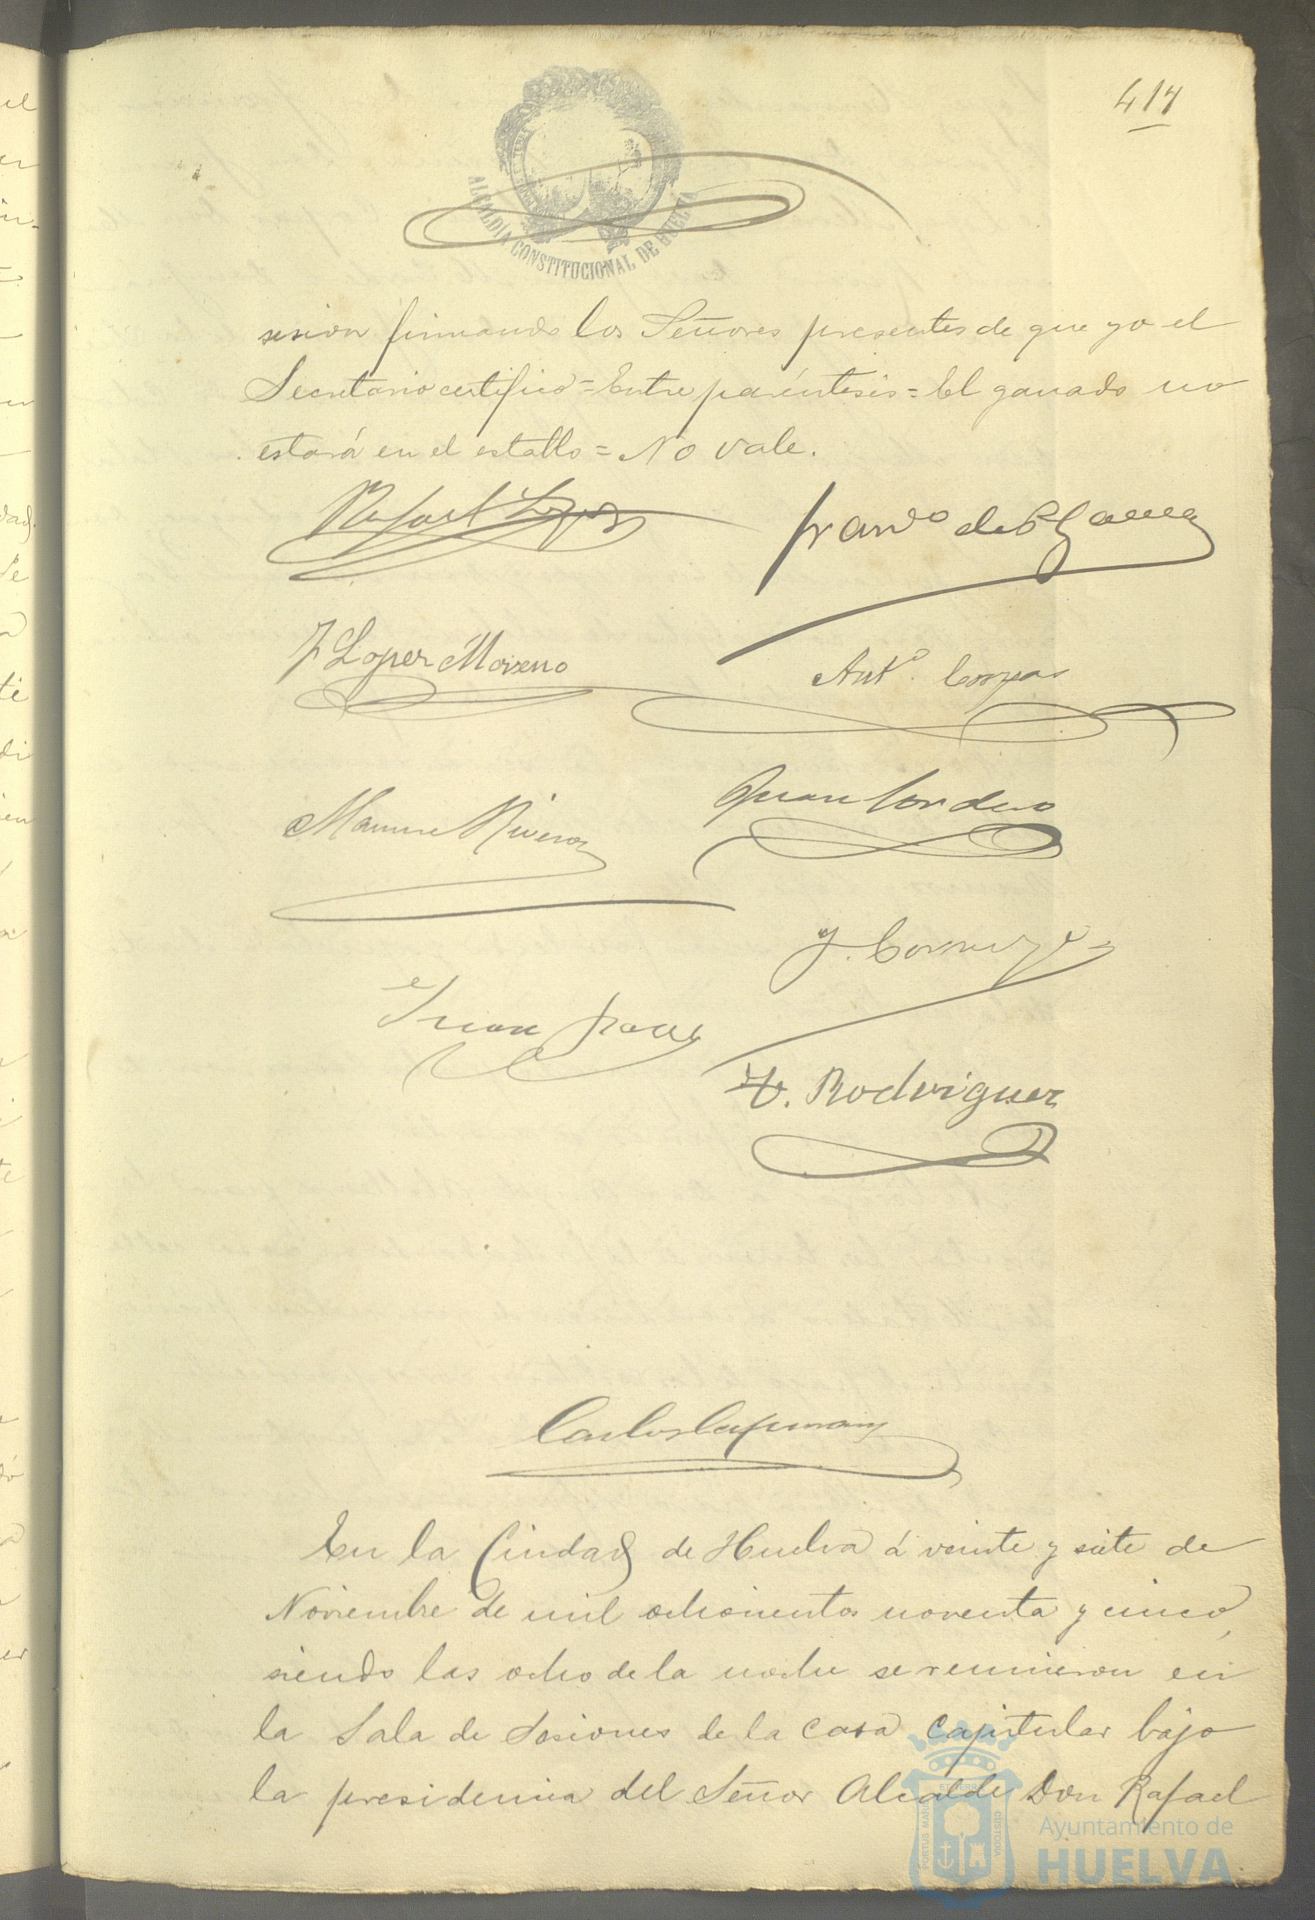 414
ALCALDÍA CONSTITUCIONAL DE HUELVA
sesion firmando los Señores presentes de que yo el
Secretario certifico = Entre paréntesis = El ganado no
estará en el establo = No vale.
Rafael Lopez
Franco de P. Garcia
J Lopez Moreno
Anto. Corpas
Manuel Rivera
Juan Cordero
J.
Juan
V. Rodriguez
Carlos
En la Ciudad de Huelva á veinte y siete de
Noviembre de mil ochocientos noventa y cinco,
siendo las ocho de la noche se reunieron en
la Sala de Sesiones de la casa capitular bajo
la presidencia del Señor Alcalde Don Rafael
Ayuntamiento de
HUELVA